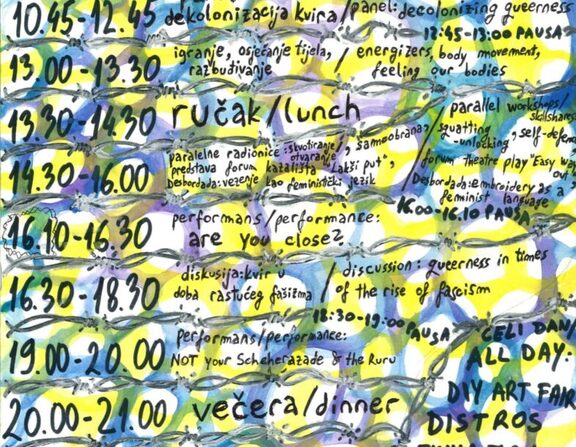 10.45-12.45 dekolonizacija kvira/panel: decolonizing queerness
12:45-13:00 PAUSA
13.00-13.30 igranje, osjećanje tijela, / energizers, body movement,
razbuđivanje / feeling our bodies
13.30-14.30 ručak/lunch
parallel workshops/
skillshares
14.30-16.00 paralelne radionice: skvotiranje/otvaranje, samoodbrana, / squatting-unlocking, self-defen
predstava forum kazališta "Lakši put", / forum theatre play "Easy way out"
Desbordada: vezenje kao feministički jezik / Desbordada: embroidery as a
feminist language
16.00-16.10 PAUSA
16.10-16.30 performans/performance:
are you close?
16.30-18.30 diskusija: kvir u / discussion: queerness in times
doba rastućeg fašizma / of the rise of fascism
18:30-19:00 PAUSA
19.00-20.00 performans/performance:
NOT your Scheherazade & the Ruru
CELI DAN/
ALL DAY:
DIY ART FAIR
DISTROS
20.00-21.00 večera/dinner